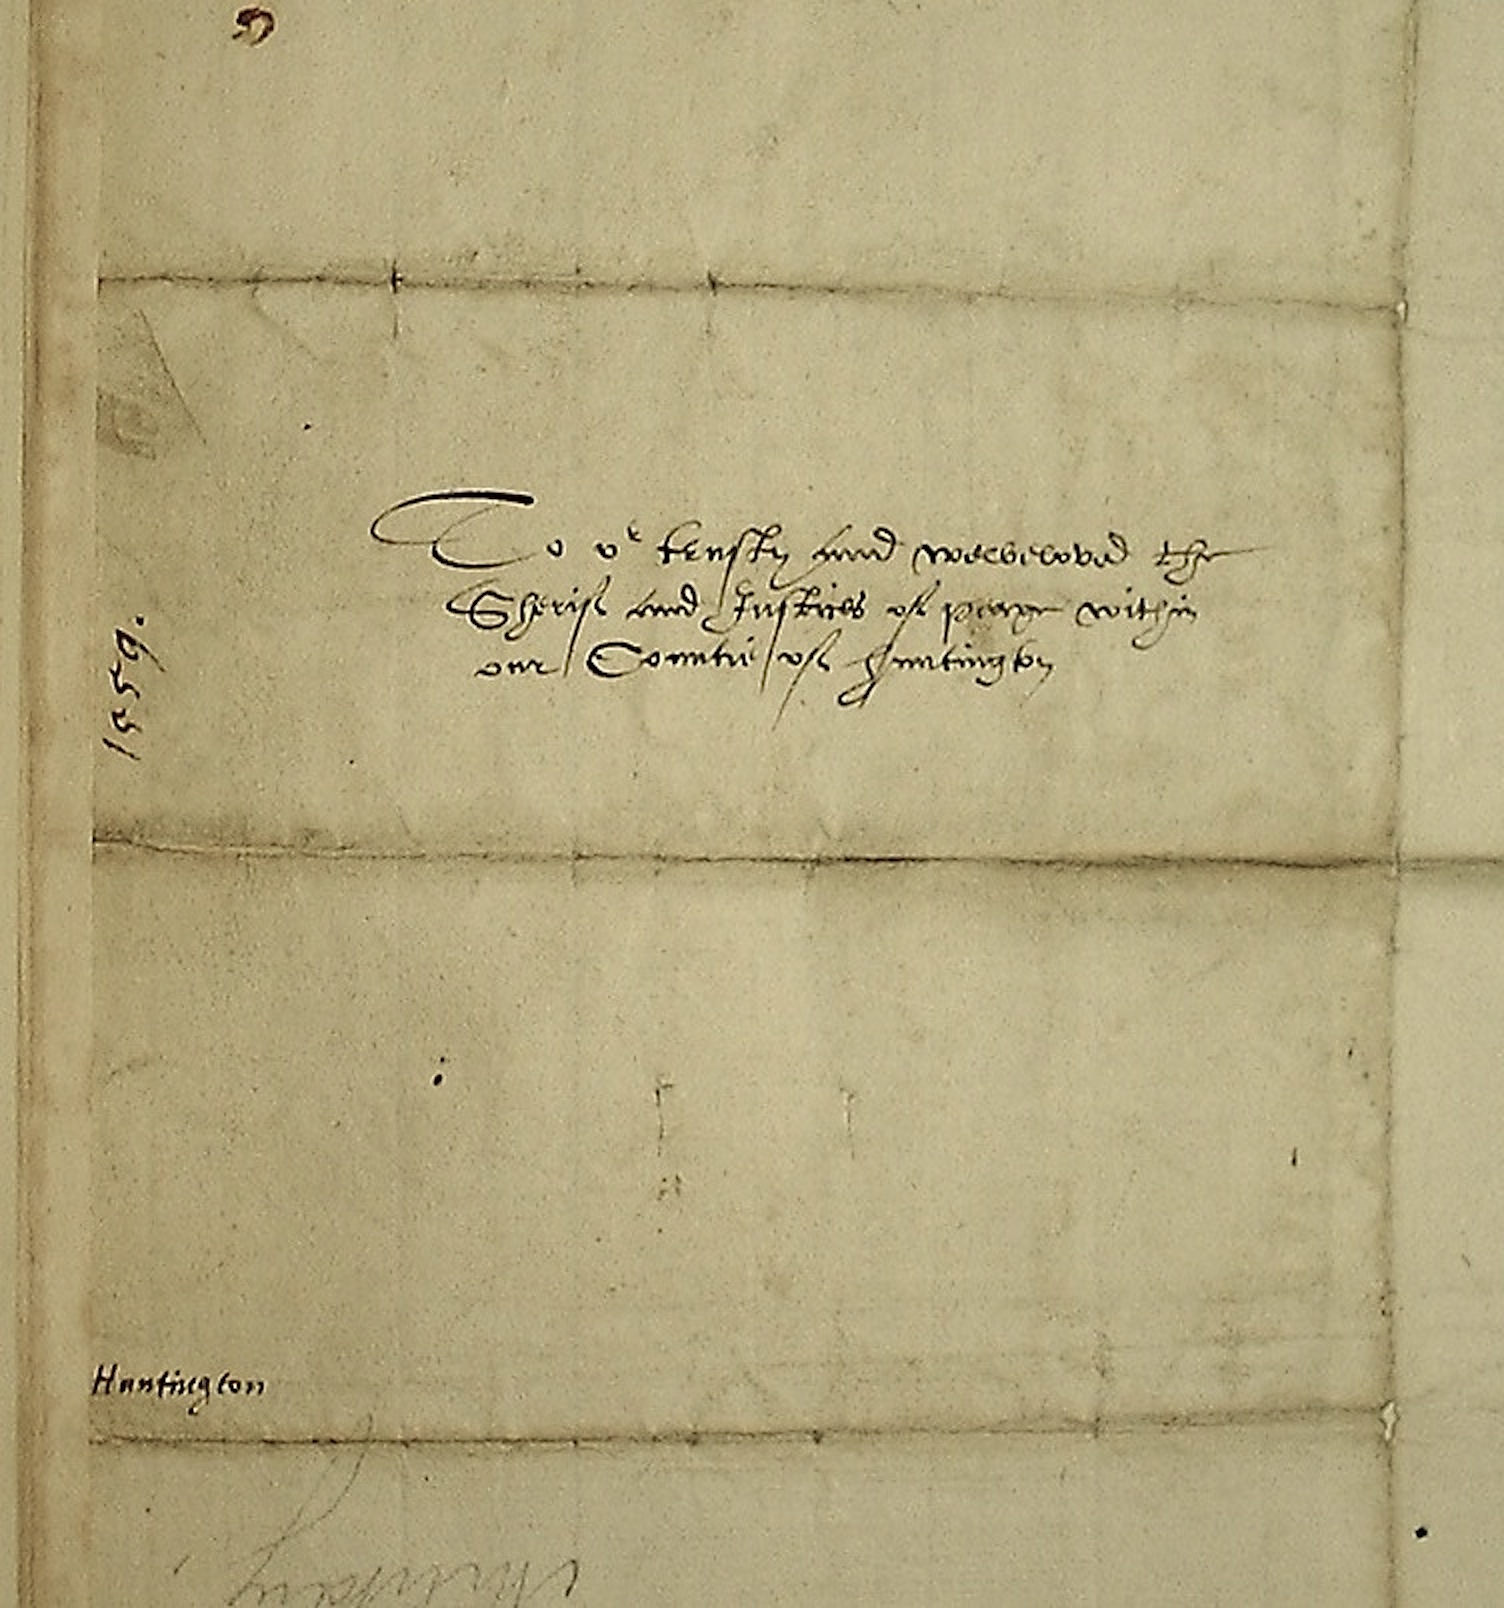 To oʳ trusty and welbeloved the
Sherif and Justices of peax within
our Countie of huntington
1559.
Huntington